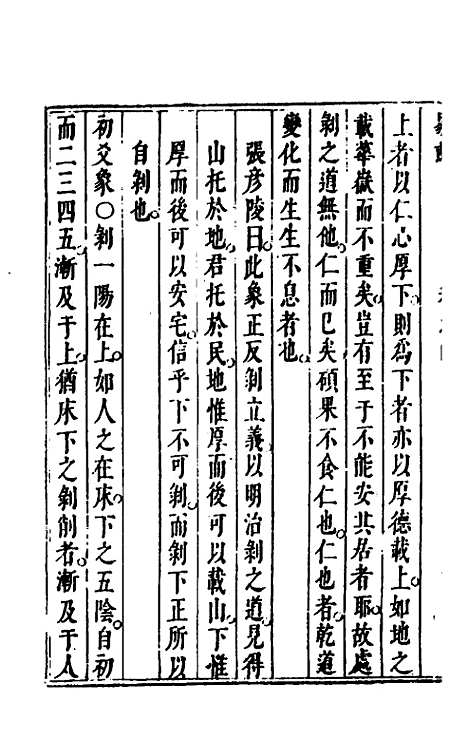 上者以仁心厚下則為下者亦以厚德載上如地之
載華嶽而不重矣豈有至于不能安其居者耶故處
剝之道無他仁而已矣碩果不食仁也仁也者乾道
變化而生生不息者也
張彥陵曰此象正反剝立義以明治剝之道見得
山托於地君托於民地惟厚而後可以載山下惟
厚而後可以安宅信乎下不可剝而剝下正所以
自剝也
初爻象○剝一陽在上如人之在床下之五陰自初
而二三四五漸及于上猶床下之剝削者漸及于人